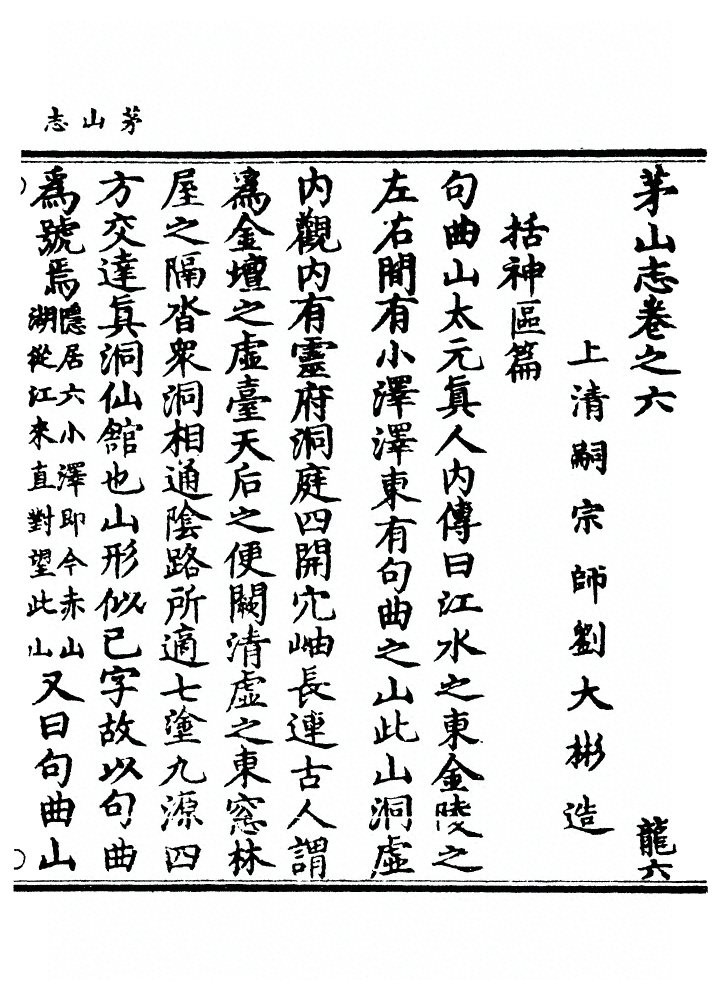 茅山志
茅山志卷之六 龍六
上清嗣宗師劉大彬造
括神區篇
句曲山太元眞人內傳曰江水之東金陵之
左右間有小澤澤東有句曲之山此山洞虛
內觀內有靈府洞庭四開穴岫長連古人謂
爲金壇之虛臺天后之便闕清虛之東窓林
屋之隔沓衆洞相通陰路所適七塗九源四
方交達眞洞仙舘也山形似已字故以句曲
爲號焉隱居六小澤即今赤山湖從江來直對望此山又曰句曲山